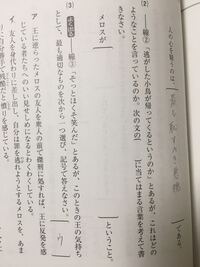 人の心を疑うのは 最も恥ずべき悪徳 である。
(2) ――線②「逃がした小鳥が帰ってくるというのか」とあるが、これはどの
ようなことを言っているのか。次の文の に当てはまる言葉を考えて書
きなさい。
メロスが ということ。
(3) ――線③「そっとほくそ笑んだ」とあるが、このときの王の気持ち
として、最も適切なものを次から一つ選び、記号で答えなさい。 ウ
ア 王に逆らったメロスの友人を衆人の前で磔刑に処すれば、王に反発を感
じている者たちへのいい見せしめになるとわくわくしている。
イ 友人を身代わりに差し出し、自分は罪を逃れようとするメロスを、あま